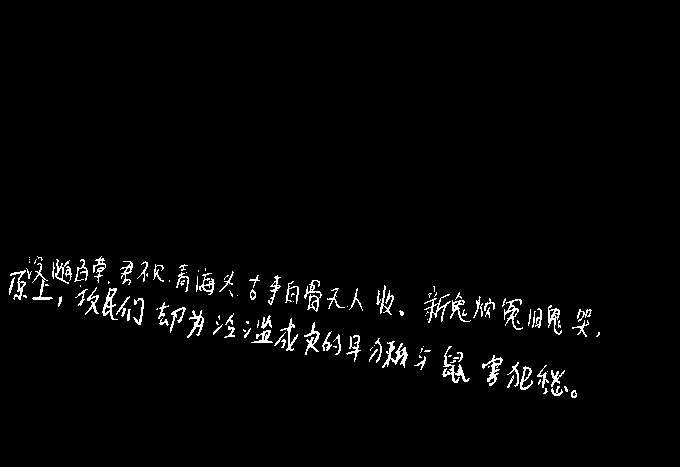 没随百草.君不见.青海头.古来白骨无人收。新鬼烦冤旧鬼哭,
原上,牧民们却为泛滥成灾的旱獭与鼠害犯愁。